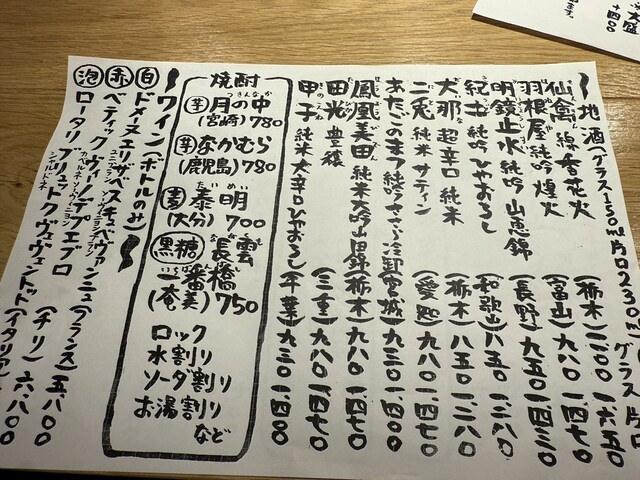 大盛
+400
ます。
〜地酒(グラス150ml 片口230ml グラス 片口
仙禽 線香花火 (栃木) 一、一〇〇 一、六五〇
羽根屋 純吟 煌火 (富山) 九八〇 一、四七〇
明鏡止水 純吟 山恵錦 (長野) 九五〇 一、四三〇
紀土 純吟 ひやおろし (和歌山) 八五〇 一、二八〇
大那 超辛口 純米 (栃木) 八五〇 一、二八〇
二兎 純米 サテン (愛知) 九八〇 一、四七〇
あたごのまつ 純吟 ささら 冷卸 (宮城) 九三〇 一、四〇〇
鳳凰美田 純米大吟 山田錦 (栃木) 九八〇 一、四七〇
田光 豊穣 (三重) 九八〇 一、四七〇
甲子 純米 大辛口 ひやおろし (千葉) 九三〇 一、四〇〇
焼酎
芋 月の中
(宮崎) 780
芋 なかむら
(鹿児島) 780
麦 泰明
(大分) 700
黒糖 長雲
一番橋
(奄美) 750
ロック
水割り
ソーダ割り
お湯割り
など
〜ワイン(ボトルのみ)〜
白 ドメイヌエリザベスキュベヴァンニュ(フランス) 五、八〇〇
赤 ベティック ヴィーノデプエブロ (チリ) 六、八〇〇
泡 ロータリ ブリュット クヴェヴェントット (イタリア)